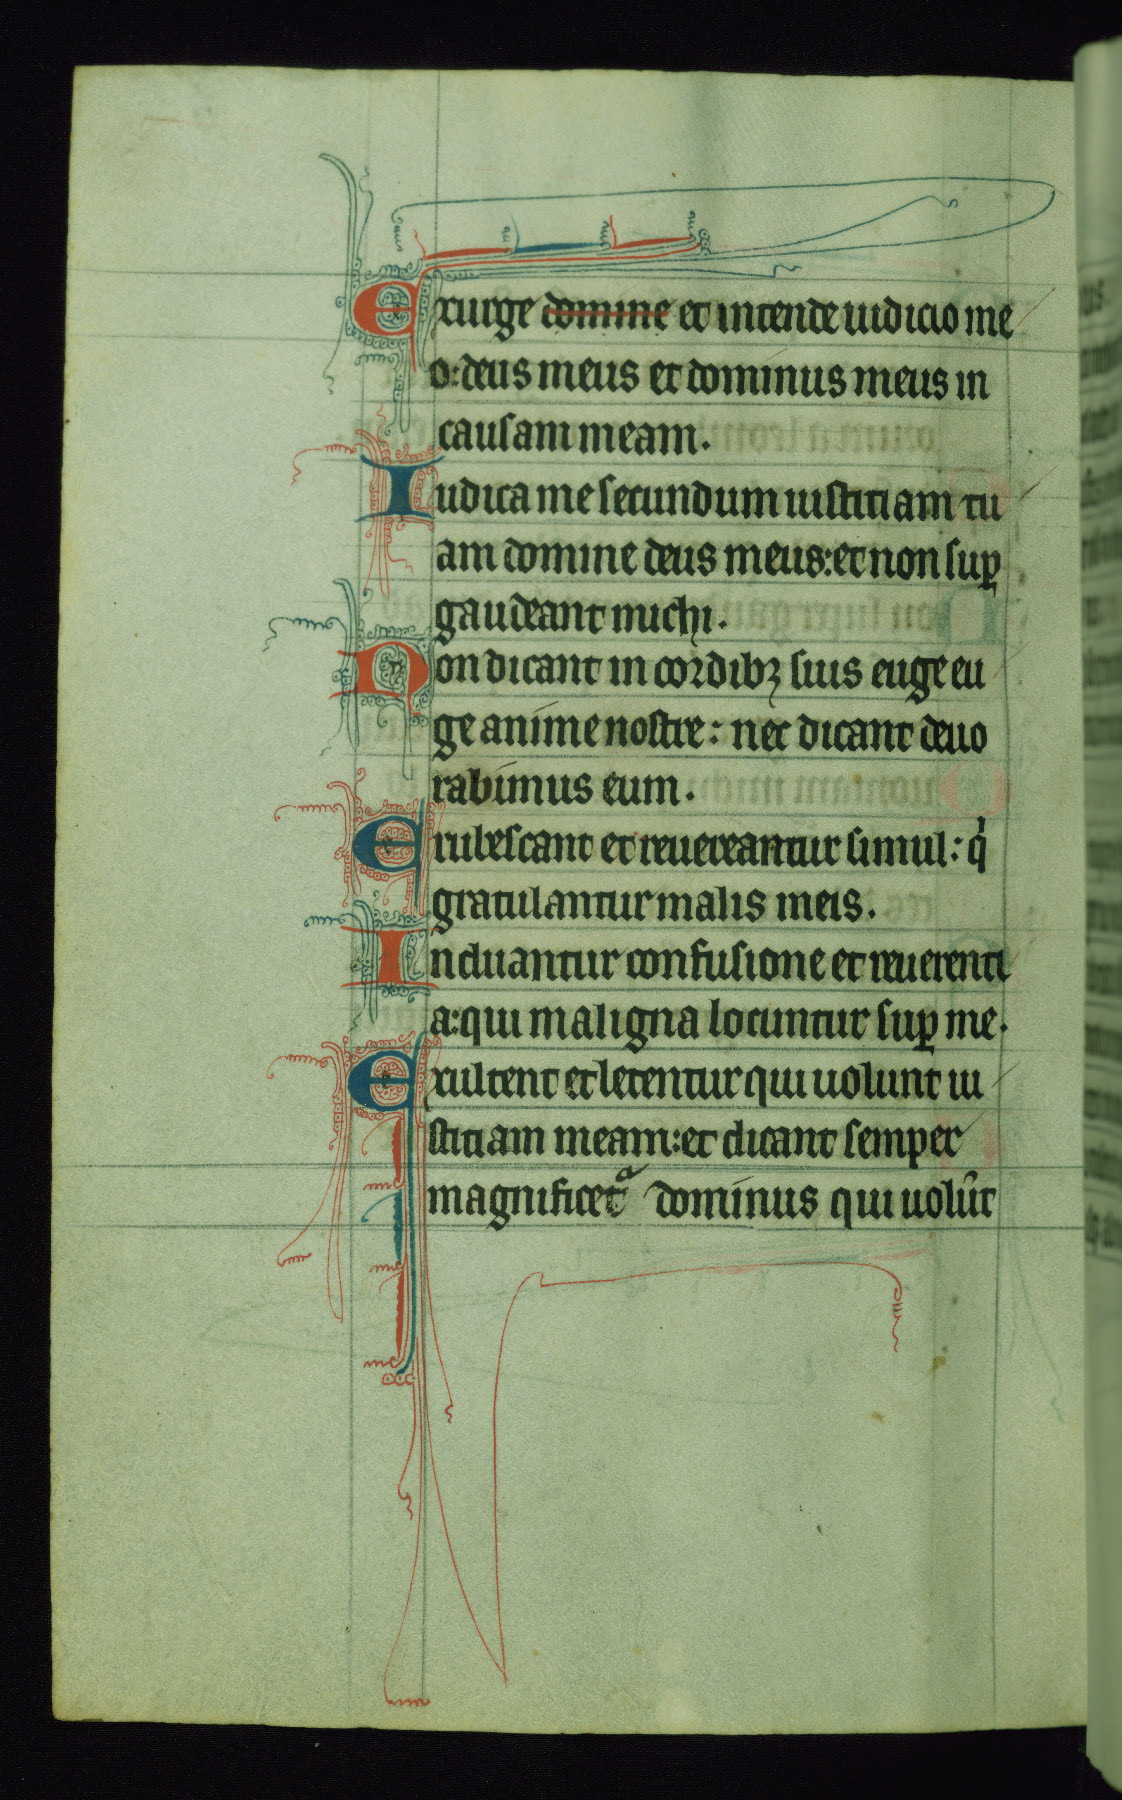 Exurge domine et intende iudicio me
o: deus meus et dominus meus in
causam meam.
Iudica me secundum iustitiam tu
am domine deus meus: et non suꝑ
gaudeant michi.
Non dicant in cordibꝫ suis euge eu
ge anime nostre: nec dicant deuo
rabimus eum.
Erubescant et reuereantur simul: qͥ
gratulantur malis meis.
Induantur confusione et reuerenti
a: qui maligna locuntur suꝑ me.
Exultent et letentur qui uolunt iu
stitiam meam: et dicant semper
magnificetᵃ dominus qui uolūt